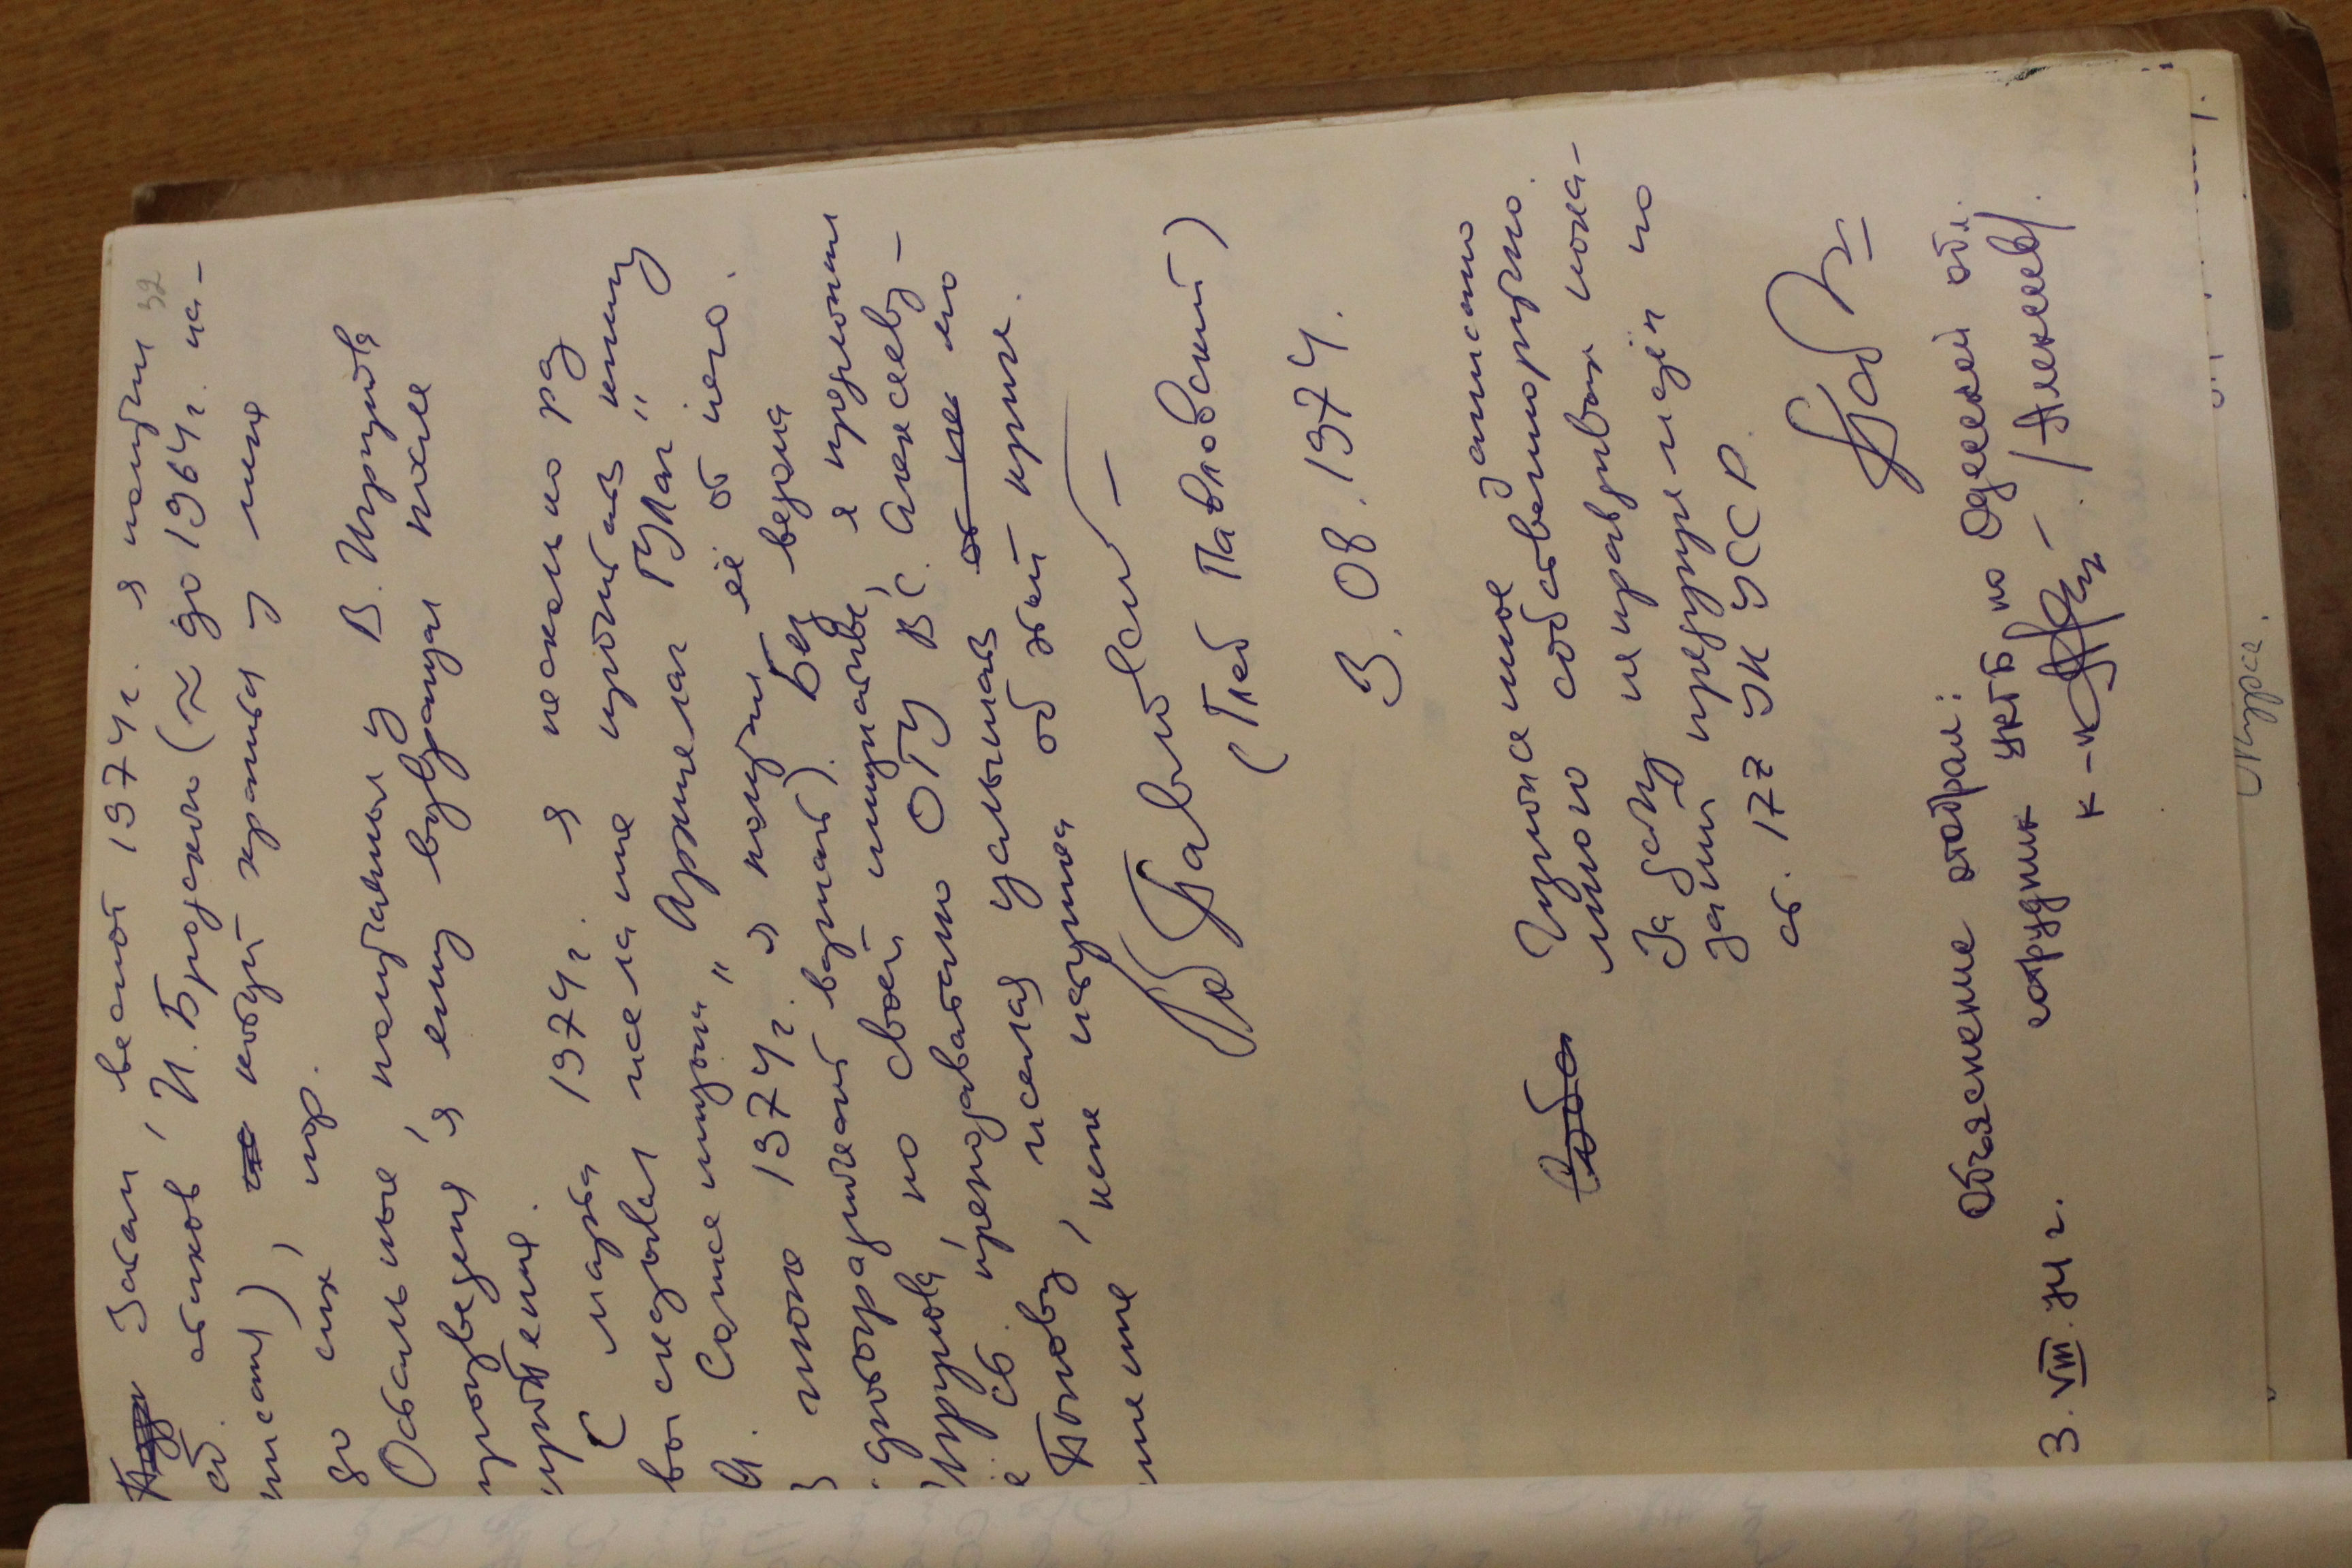 Затем, весной 1974 г. я получил 32
сб. стихов И. Бродского (≈ до 1964 г. на-
писания), который хранится у меня
до сих пор.
Остальные, полученные у В. Игрунова
произведения я ему возвращал после
прочтения.
С марта 1974 г. я несколько раз
высказывал желание прочитать книгу
А. Солженицына „Архипелаг ГУЛаг".
В июне 1974 г. я получил её от него.
фотографический вариант). Без ведома
Игрунова, по своей инициативе, я предложил
её ст. преподавателю ОГУ В С. Алексееву-
Попову, желая услышать от не его
мнение как историка об этой книге.
Глеб Павловский
(Глеб Павловский)
3. 08. 1974.
Собс Изложенное записано
мною собственноручно.
За дачу неправдивых пока-
заний предупреждён по
ст. 177 УК УССР.
Объяснение отобрал:
сотрудник УКГБ по Одесской обл.
3. VIII. 74 г. к-н /Алексеев/.
Курсе.